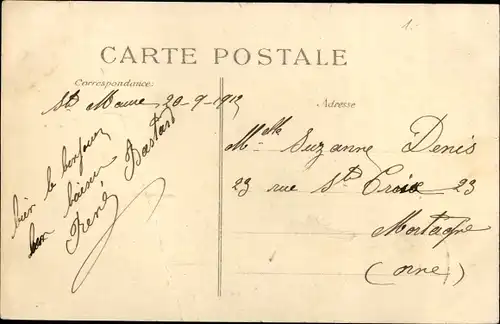 1.
CARTE POSTALE
Correspondance
Adresse
St Maur 20-9-1912
bien le bonjour
un baiser
René Bastard
Mlle Suzanne Denis
23 rue Ste Croix 23
Mortagne
(Orne)